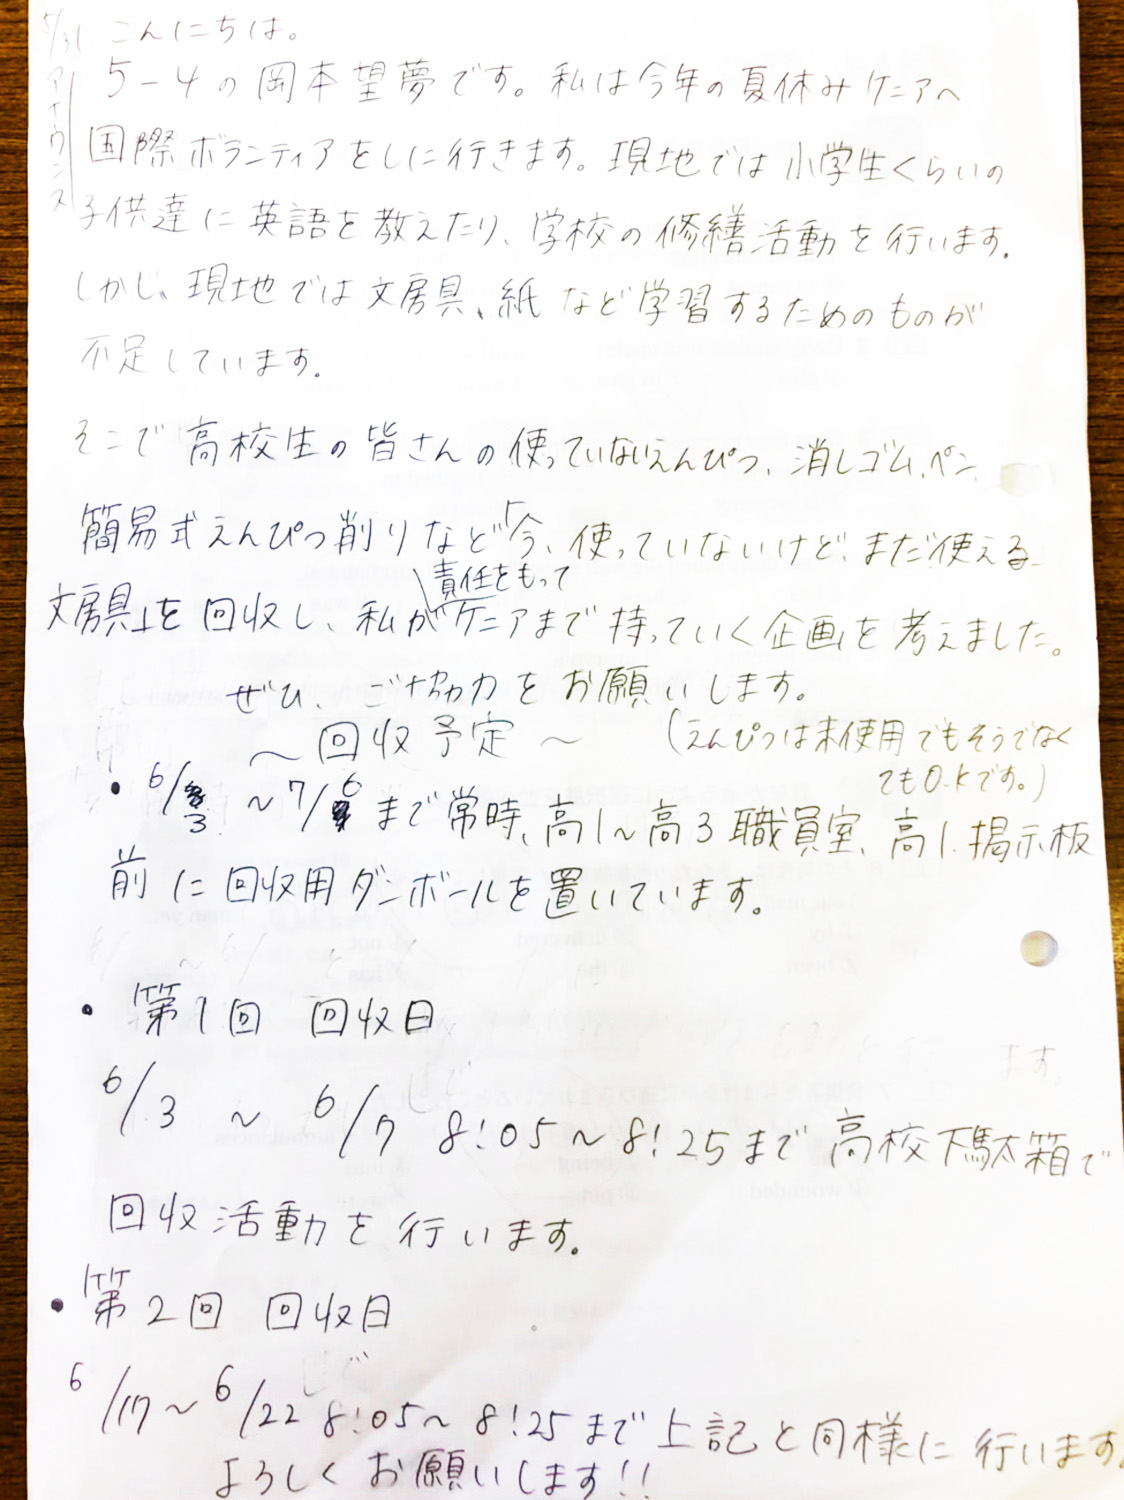 5/31 アナウンス
こんにちは。
5-4の岡本望夢です。私は今年の夏休みケニアへ
国際ボランティアをしに行きます。現地では小学生くらいの
子供達に英語を教えたり、学校の修繕活動を行います。
しかし、現地では文房具、紙など学習するためのものが
不足しています。
そこで高校生の皆さんの使っていないえんぴつ、消しゴム、ペン、
簡易式えんぴつ削りなど「今、使っていないけど、まだ使える
責任をもって
文房具」を回収し、私がケニアまで持っていく企画を考えました。
ぜひ、ご協力をお願いします。
〜回収予定〜
(えんぴつは未使用でもそうでなく
てもO.Kです。)
・6/3 〜7/6まで常時、高1〜高3職員室、高1.掲示板
前に回収用ダンボールを置いています。
・第1回 回収日
6/3 〜 6/7 8:05〜8:25まで高校下駄箱で
回収活動を行います。
・第2回 回収日
6/17〜6/22 8:05〜8:25まで上記と同様に行います。
よろしくお願いします!!